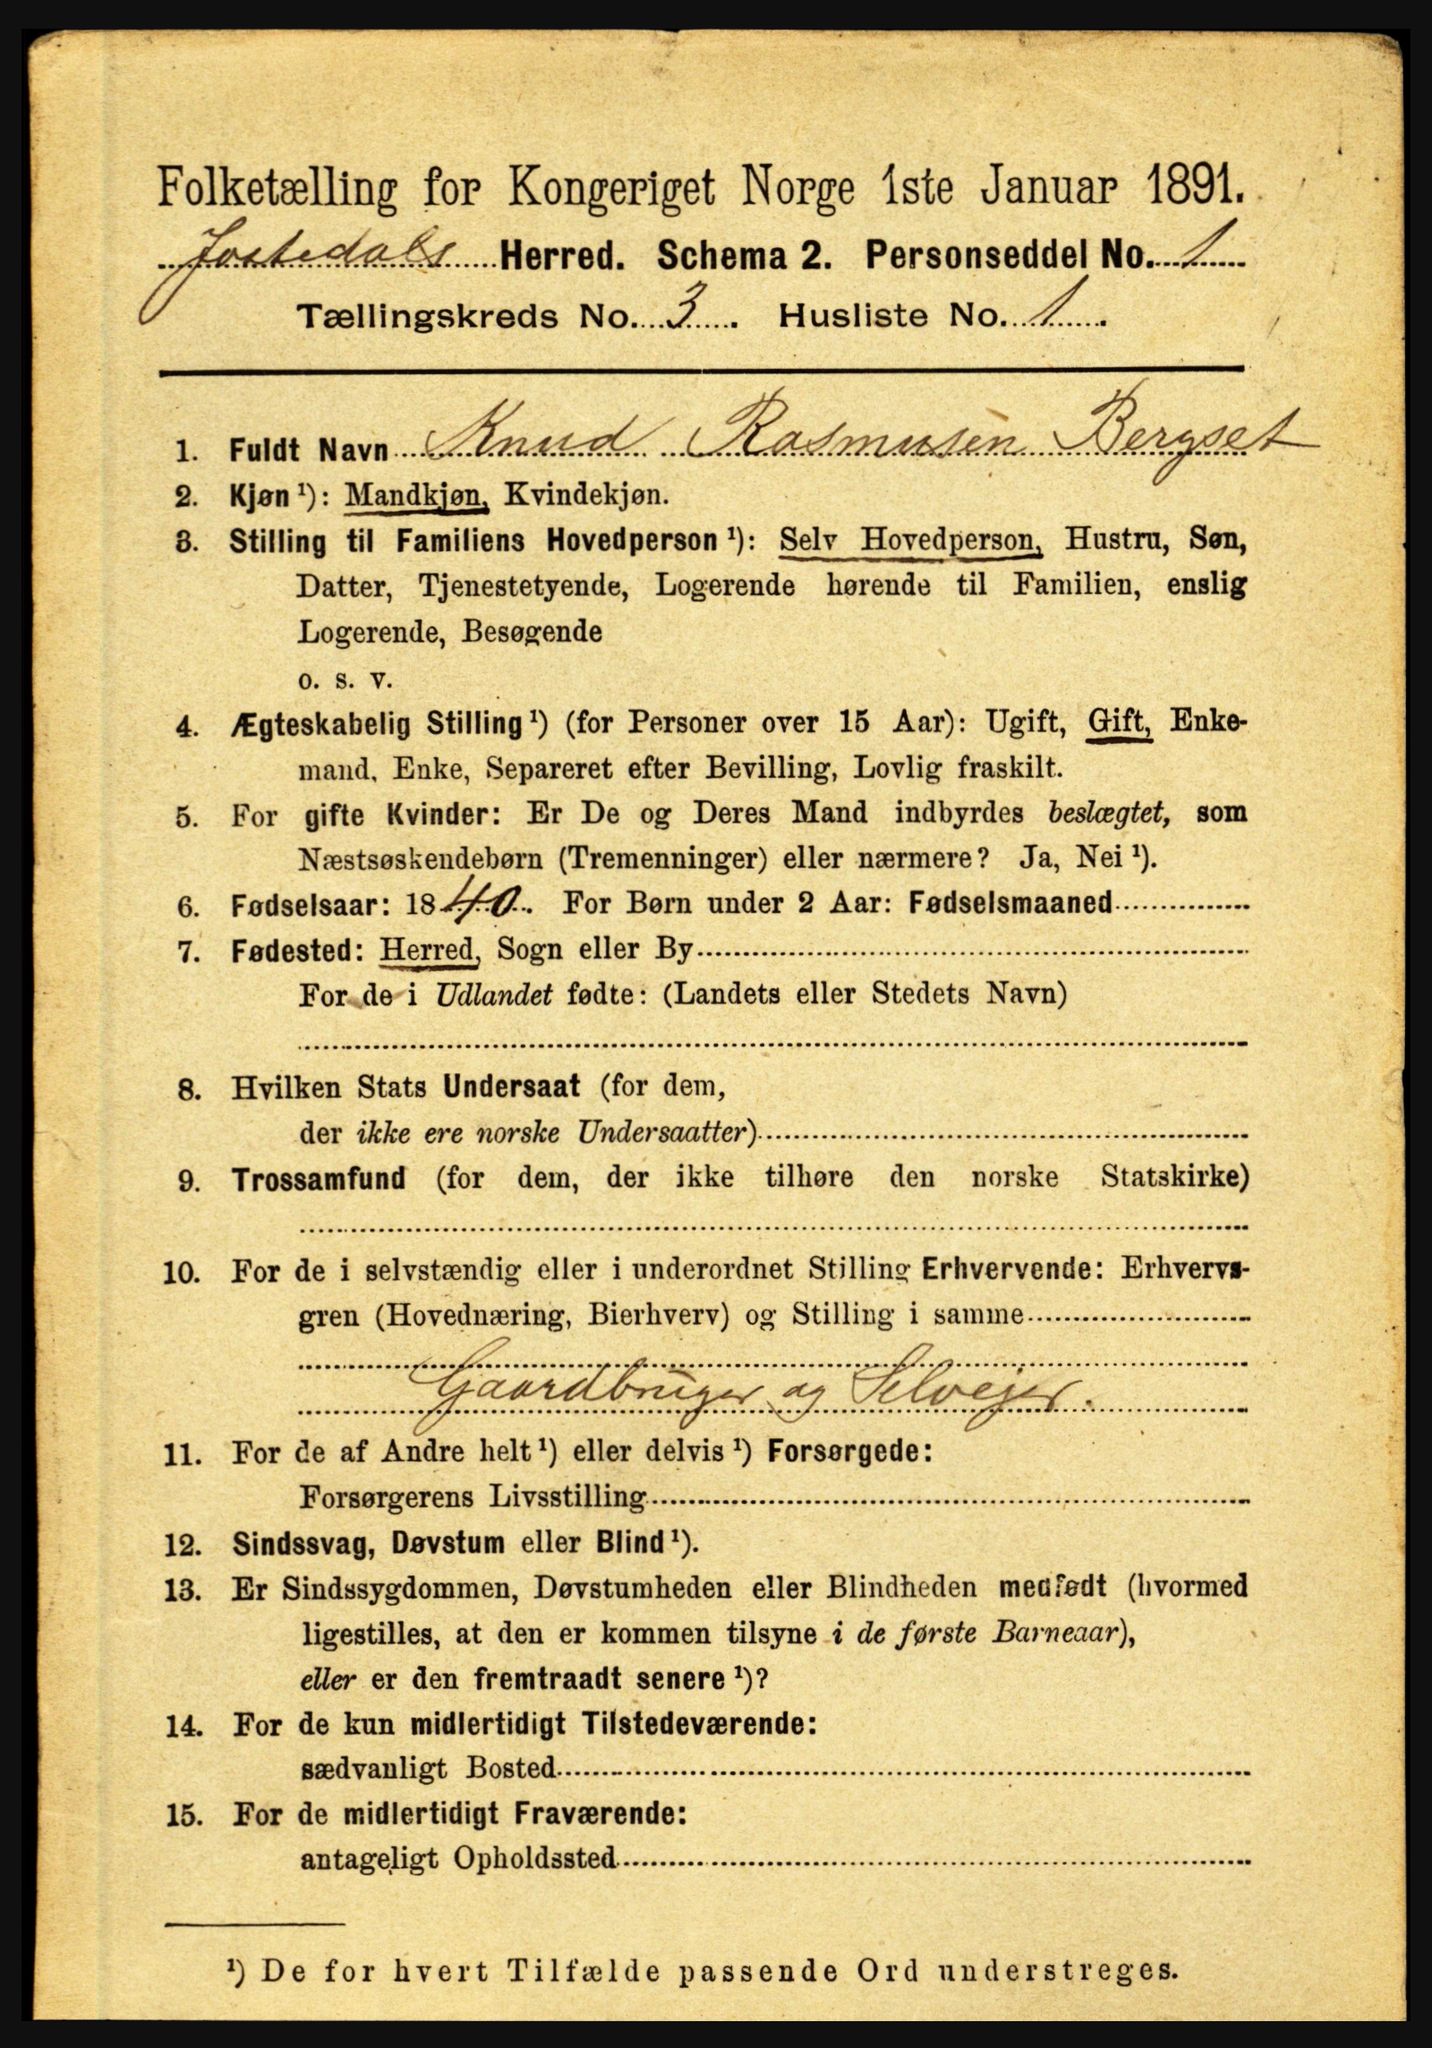 Folketælling for Kongeriget Norge 1ste Januar 1891.
Jostedals Herred. Schema 2. Personseddel No. 1
Tællingskreds No. 3. Husliste No. 1.
1. Fuldt Navn Knud Rasmusen Bergset
2. Kjøn ¹): Mandkjøn, Kvindekjøn.
3. Stilling til Familiens Hovedperson ¹): Selv Hovedperson, Hustru, Søn,
Datter, Tjenestetyende, Logerende hørende til Familien, enslig
Logerende, Besøgende
o. s. v.
4. Ægteskabelig Stilling ¹) (for Personer over 15 Aar): Ugift, Gift, Enke-
mand, Enke, Separeret efter Bevilling, Lovlig fraskilt.
5. For gifte Kvinder: Er De og Deres Mand indbyrdes beslægtet, som
Næstsøskendebørn (Tremenninger) eller nærmere? Ja, Nei ¹).
6. Fødselsaar: 1840. For Børn under 2 Aar: Fødselsmaaned
7. Fødested: Herred, Sogn eller By
For de i Udlandet fødte: (Landets eller Stedets Navn)
8. Hvilken Stats Undersaat (for dem,
der ikke ere norske Undersaatter)
9. Trossamfund (for dem, der ikke tilhøre den norske Statskirke)
10. For de i selvstændig eller i underordnet Stilling Erhvervende: Erhvervs-
gren (Hovednæring, Bierhverv) og Stilling i samme
Gaardbruger og Selvejer.
11. For de af Andre helt ¹) eller delvis ¹) Forsørgede:
Forsørgerens Livsstilling
12. Sindssvag, Døvstum eller Blind ¹).
13. Er Sindssygdommen, Døvstumheden eller Blindheden medfødt (hvormed
ligestilles, at den er kommen tilsyne i de første Barneaar),
eller er den fremtraadt senere ¹)?
14. For de kun midlertidigt Tilstedeværende:
sædvanligt Bosted
15. For de midlertidigt Fraværende:
antageligt Opholdssted
¹) De for hvert Tilfælde passende Ord understreges.